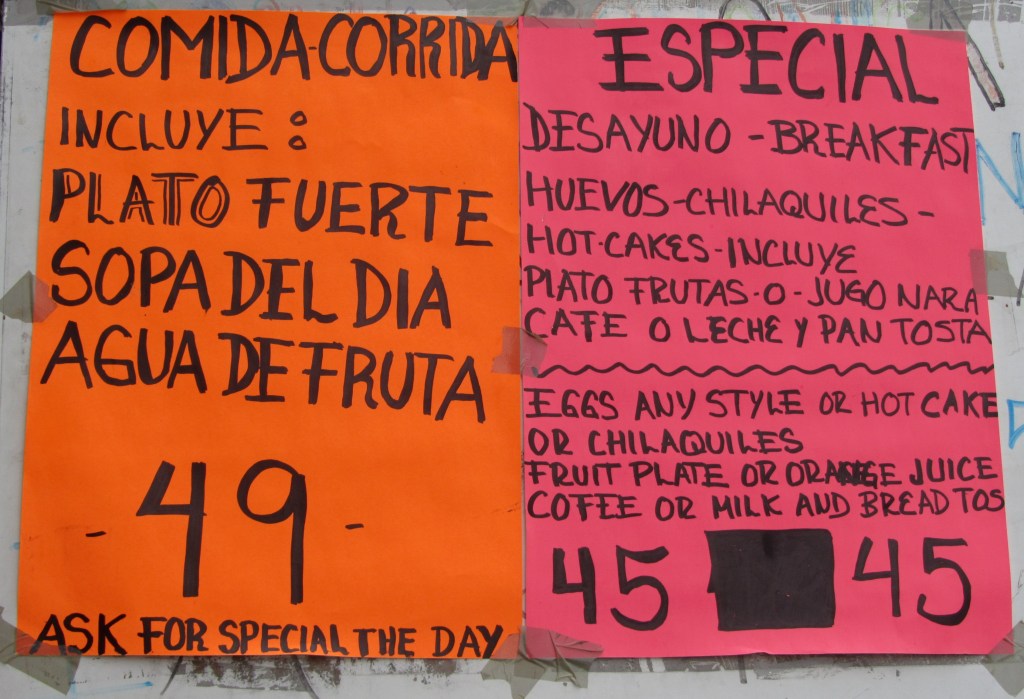 COMIDA-CORRIDA
INCLUYE :
PLATO FUERTE
SOPA DEL DIA
AGUA DE FRUTA
- 49 -
ASK FOR SPECIAL THE DAY
ESPECIAL
DESAYUNO - BREAKFAST
HUEVOS-CHILAQUILES-
HOT-CAKES-INCLUYE
PLATO FRUTAS-O-JUGO NARA-
CAFE O LECHE Y PAN TOSTA
EGGS ANY STYLE OR HOT CAKE
OR CHILAQUILES
FRUIT PLATE OR ORANGE JUICE
COFEE OR MILK AND BREAD TOS
45 45